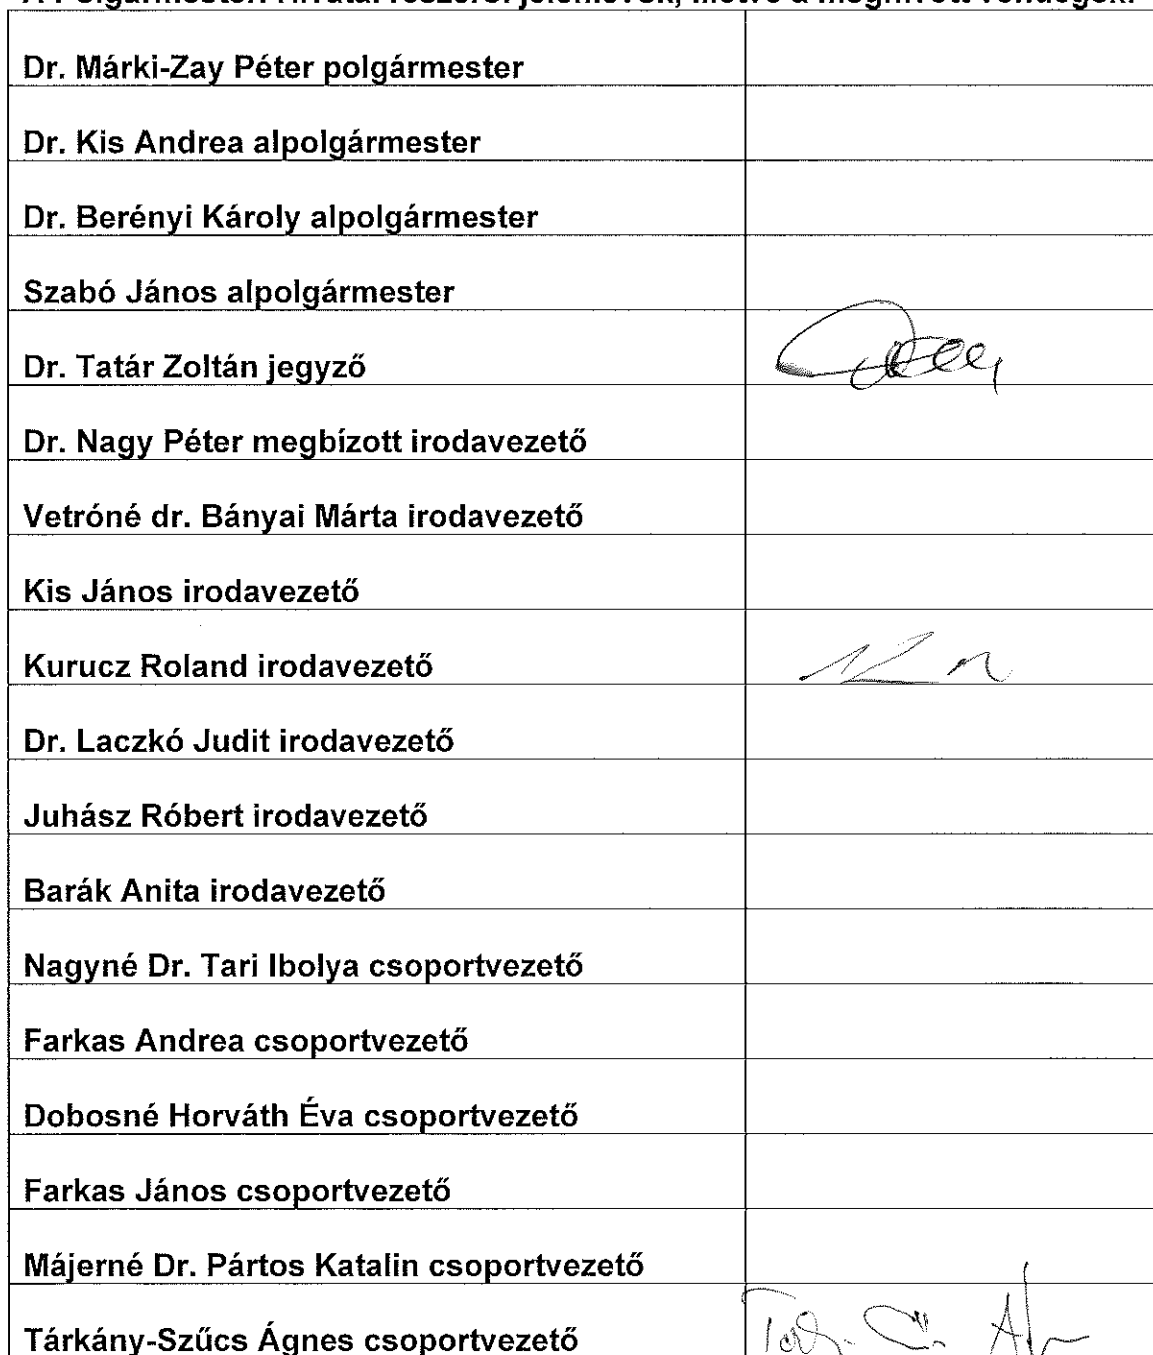 A Polgármesteri Hivatal részéről jelenlévők, illetve a meghívott vendégek:
Dr. Márki-Zay Péter polgármester
Dr. Kis Andrea alpolgármester
Dr. Berényi Károly alpolgármester
Szabó János alpolgármester
Dr. Tatár Zoltán jegyző
Dr. Nagy Péter megbízott irodavezető
Vetróné dr. Bányai Márta irodavezető
Kis János irodavezető
Kurucz Roland irodavezető
Dr. Laczkó Judit irodavezető
Juhász Róbert irodavezető
Barák Anita irodavezető
Nagyné Dr. Tari Ibolya csoportvezető
Farkas Andrea csoportvezető
Dobosné Horváth Éva csoportvezető
Farkas János csoportvezető
Májerné Dr. Pártos Katalin csoportvezető
Tárkány-Szűcs Ágnes csoportvezető